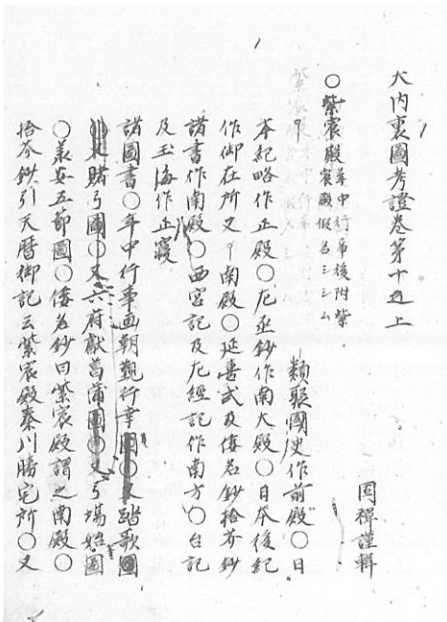 大内裏圖考證卷第十四上
固禪謹輯
○紫宸殿 年中行事後附紫宸殿假名シヽム
類聚國史作前殿○日
本紀略作正殿○左丞鈔作南大殿○日本後紀
作御在所又曰南殿○延喜式及倭名鈔拾芥鈔
諸書作南殿○西宮記及左經記作南方○台記
及玉海作正寢
諸圖書○年中行事画朝覲行幸圖○又踏歌圖
○又賭弓圖○又六府献菖蒲圖○又弓場始圖
○義女五節圖○倭名鈔曰紫宸殿謂之南殿○
拾芥鈔引天曆御記云紫宸殿秦川勝宅所○又